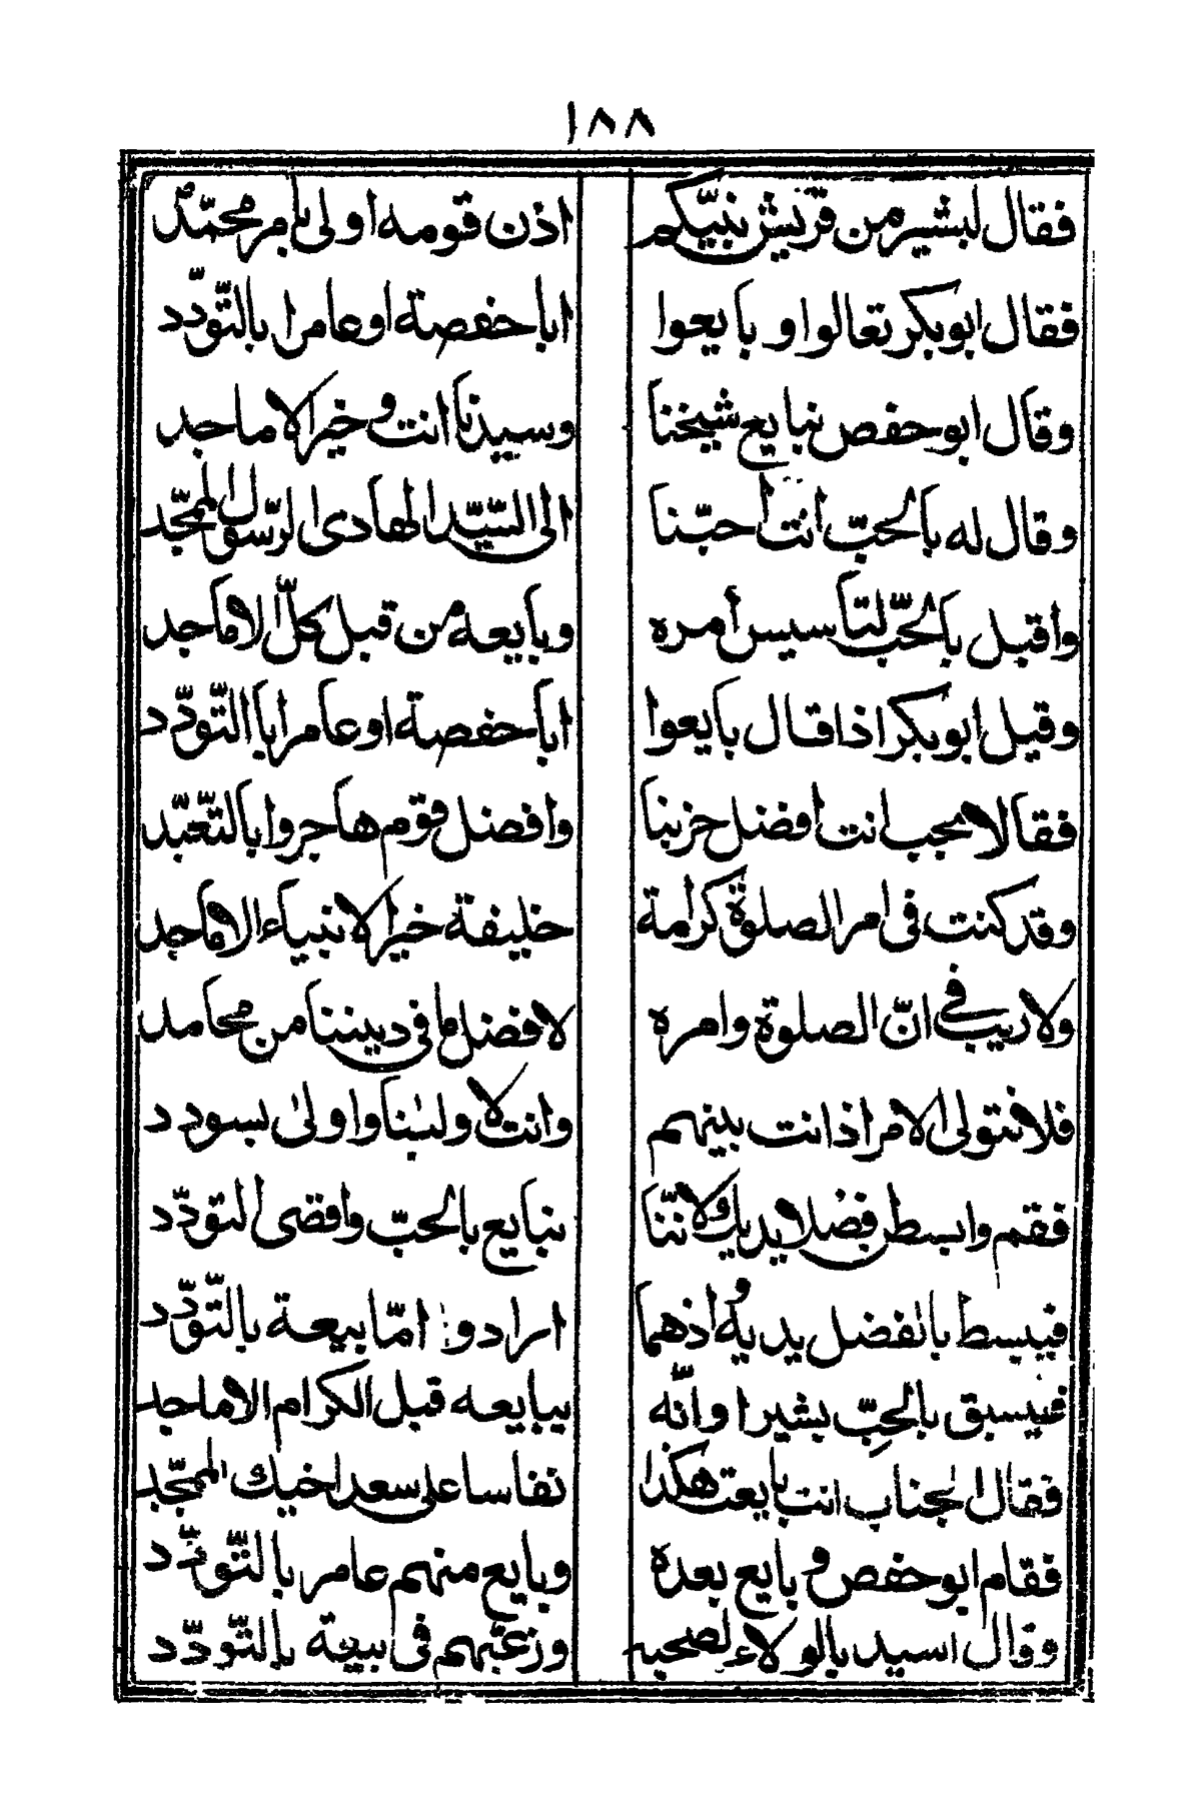 ١٨٨
فقال لبشير من قريش نبيكم اذن قومه اولى بامر محمّد
فقال ابوبكر تعالوا و بايعوا اباحفصة اوعامرا بالتّودّد
وقال ابو حفص نبايع شيخنا وسيدنا انت و خير الاماجد
وقال له بالحبّ انت احبّنا الى السّيّد الهادى الرّسول الممجّد
واقبل بالحبّ لتأسيس أمره وبايعه من قبل كلّ الاماجد
وقيل ابوبكر اذا قال بايعوا اباحفصة اوعامرا بالتّودّد
فقالا نجب انت افضل حزبنا وافضل قوم هاجروا بالتّعبّد
وقد كنت فى امر الصلوة كرامة خليفة خير الانبياء الاماجد
ولاريب في انّ الصلوة وامره لافضل ما فى ديننا من محامد
فلا نتولى الامر اذ انت بينهم وانت لاولٰنا واولىٰ بسودد
فقم وابسط فضلا يديك ولاننا نبايع بالحبّ واقضى التودّد
فيبسط بالفضل يديه و اذهما ارادوا امّا بيعة بالتّودّد
فيسبق بالحبّ بشيرا وانّه يبايعه قبل الكرام الاماجد
فقال الجناب انت بايعت هكذا نفاسا على سعد اخيك الممجّد
فقام ابو حفص و بايع بعده وبايع منهم عامر بالتّودّد
وقال اسيد بالولاء لصحبه ورغبهم فى بيعة بالتّودّد